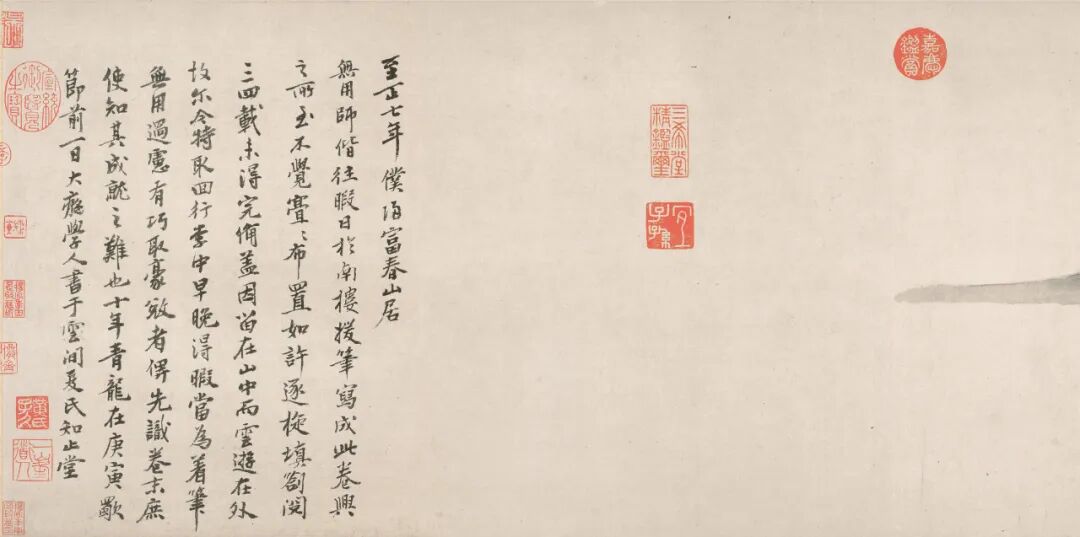 嘉慶鑑賞
三希堂精鑑璽
宜子孫
至正七年僕歸富春山居
無用師偕往暇日於南樓援筆寫成此卷興
之所至不覺亹〻布置如許逐旋填劄閱
三四載未得完備盖因留在山中而雲遊在外
故尔今特取回行李中早晚得暇當為着筆
無用過慮有巧取豪敚者俾先識卷末庶
使知其成就之難也十年青龍在庚寅歜
節前一日大癡學人書于雲間夏氏知止堂
宣統御覽之寶
黃氏子久
一峯道人